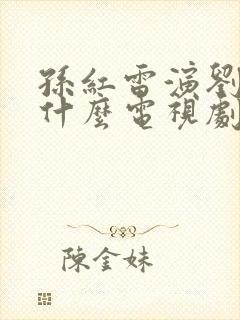 孫紅雷演劉
什麼電視劇
陳金妹